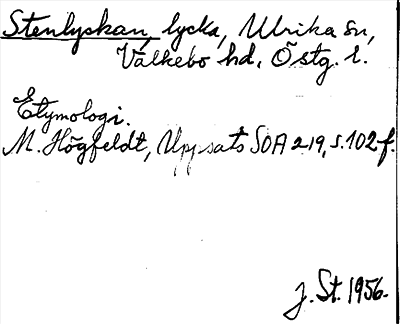 Stenlyckan, lycka, Ulrika sn,
Valkebo hd, Östg. l.
Etymologi.
M. Högfeldt, Uppsats SOA 219, s. 102 f.
J. St. 1956.